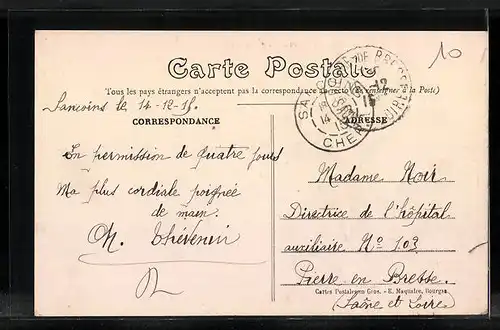 10
Carte Postale
Tous les pays étrangers n'acceptent pas la correspondance au recto (se renseigner à la Poste)
Sancoins le 14-12-15.
CORRESPONDANCE
ADRESSE
CHER
En permission de quatre jours
Ma plus cordiale poignée
de main.
Ch. Thévenin
Madame Noir
Directrice de l'hôpital
auxiliaire No 103
Pierre en Bresse.
Cartes Postales en Gros. - E. Maquaire, Bourges
(Saône et Loire)